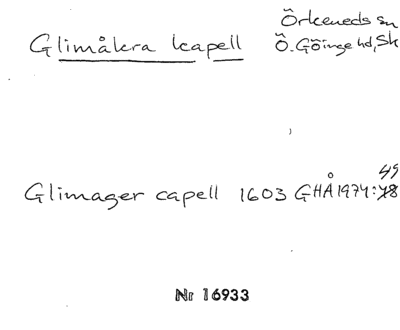 Örkeneds sn
Glimåkra kapell Ö. Göinge hd, Sk
49
Glimager capell 1603 GHÅ 1974:48
Nr 16933